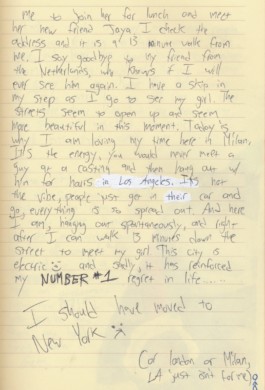 me to join her for lunch and meet
her new friend Jaya. I check the
address and it is a 13 minute walk from
me. I say goodbye to my friend from
the Netherlands, who knows if I will
ever see him again. I have a skip in
my step as I go to see my girl. The
streets seem to open up and seem
more beautiful in this moment. Today is
why I am loving my time here in Milan.
It's the energy, you would never meet a
guy at a casting and then hang out w/
him for hours in Los Angeles. It's not
the vibe, people just get n their car and
go, everything is so spread out. And here
I am, hanging out spontaneously, and right
after I can walk 13 minutes down the
street to meet my girl. This city is
electric and sadly, it has reinforced
my NUMBER #1 regret in life.....
I should have moved to
New York
(or London or Milan,
LA just isn't for me)